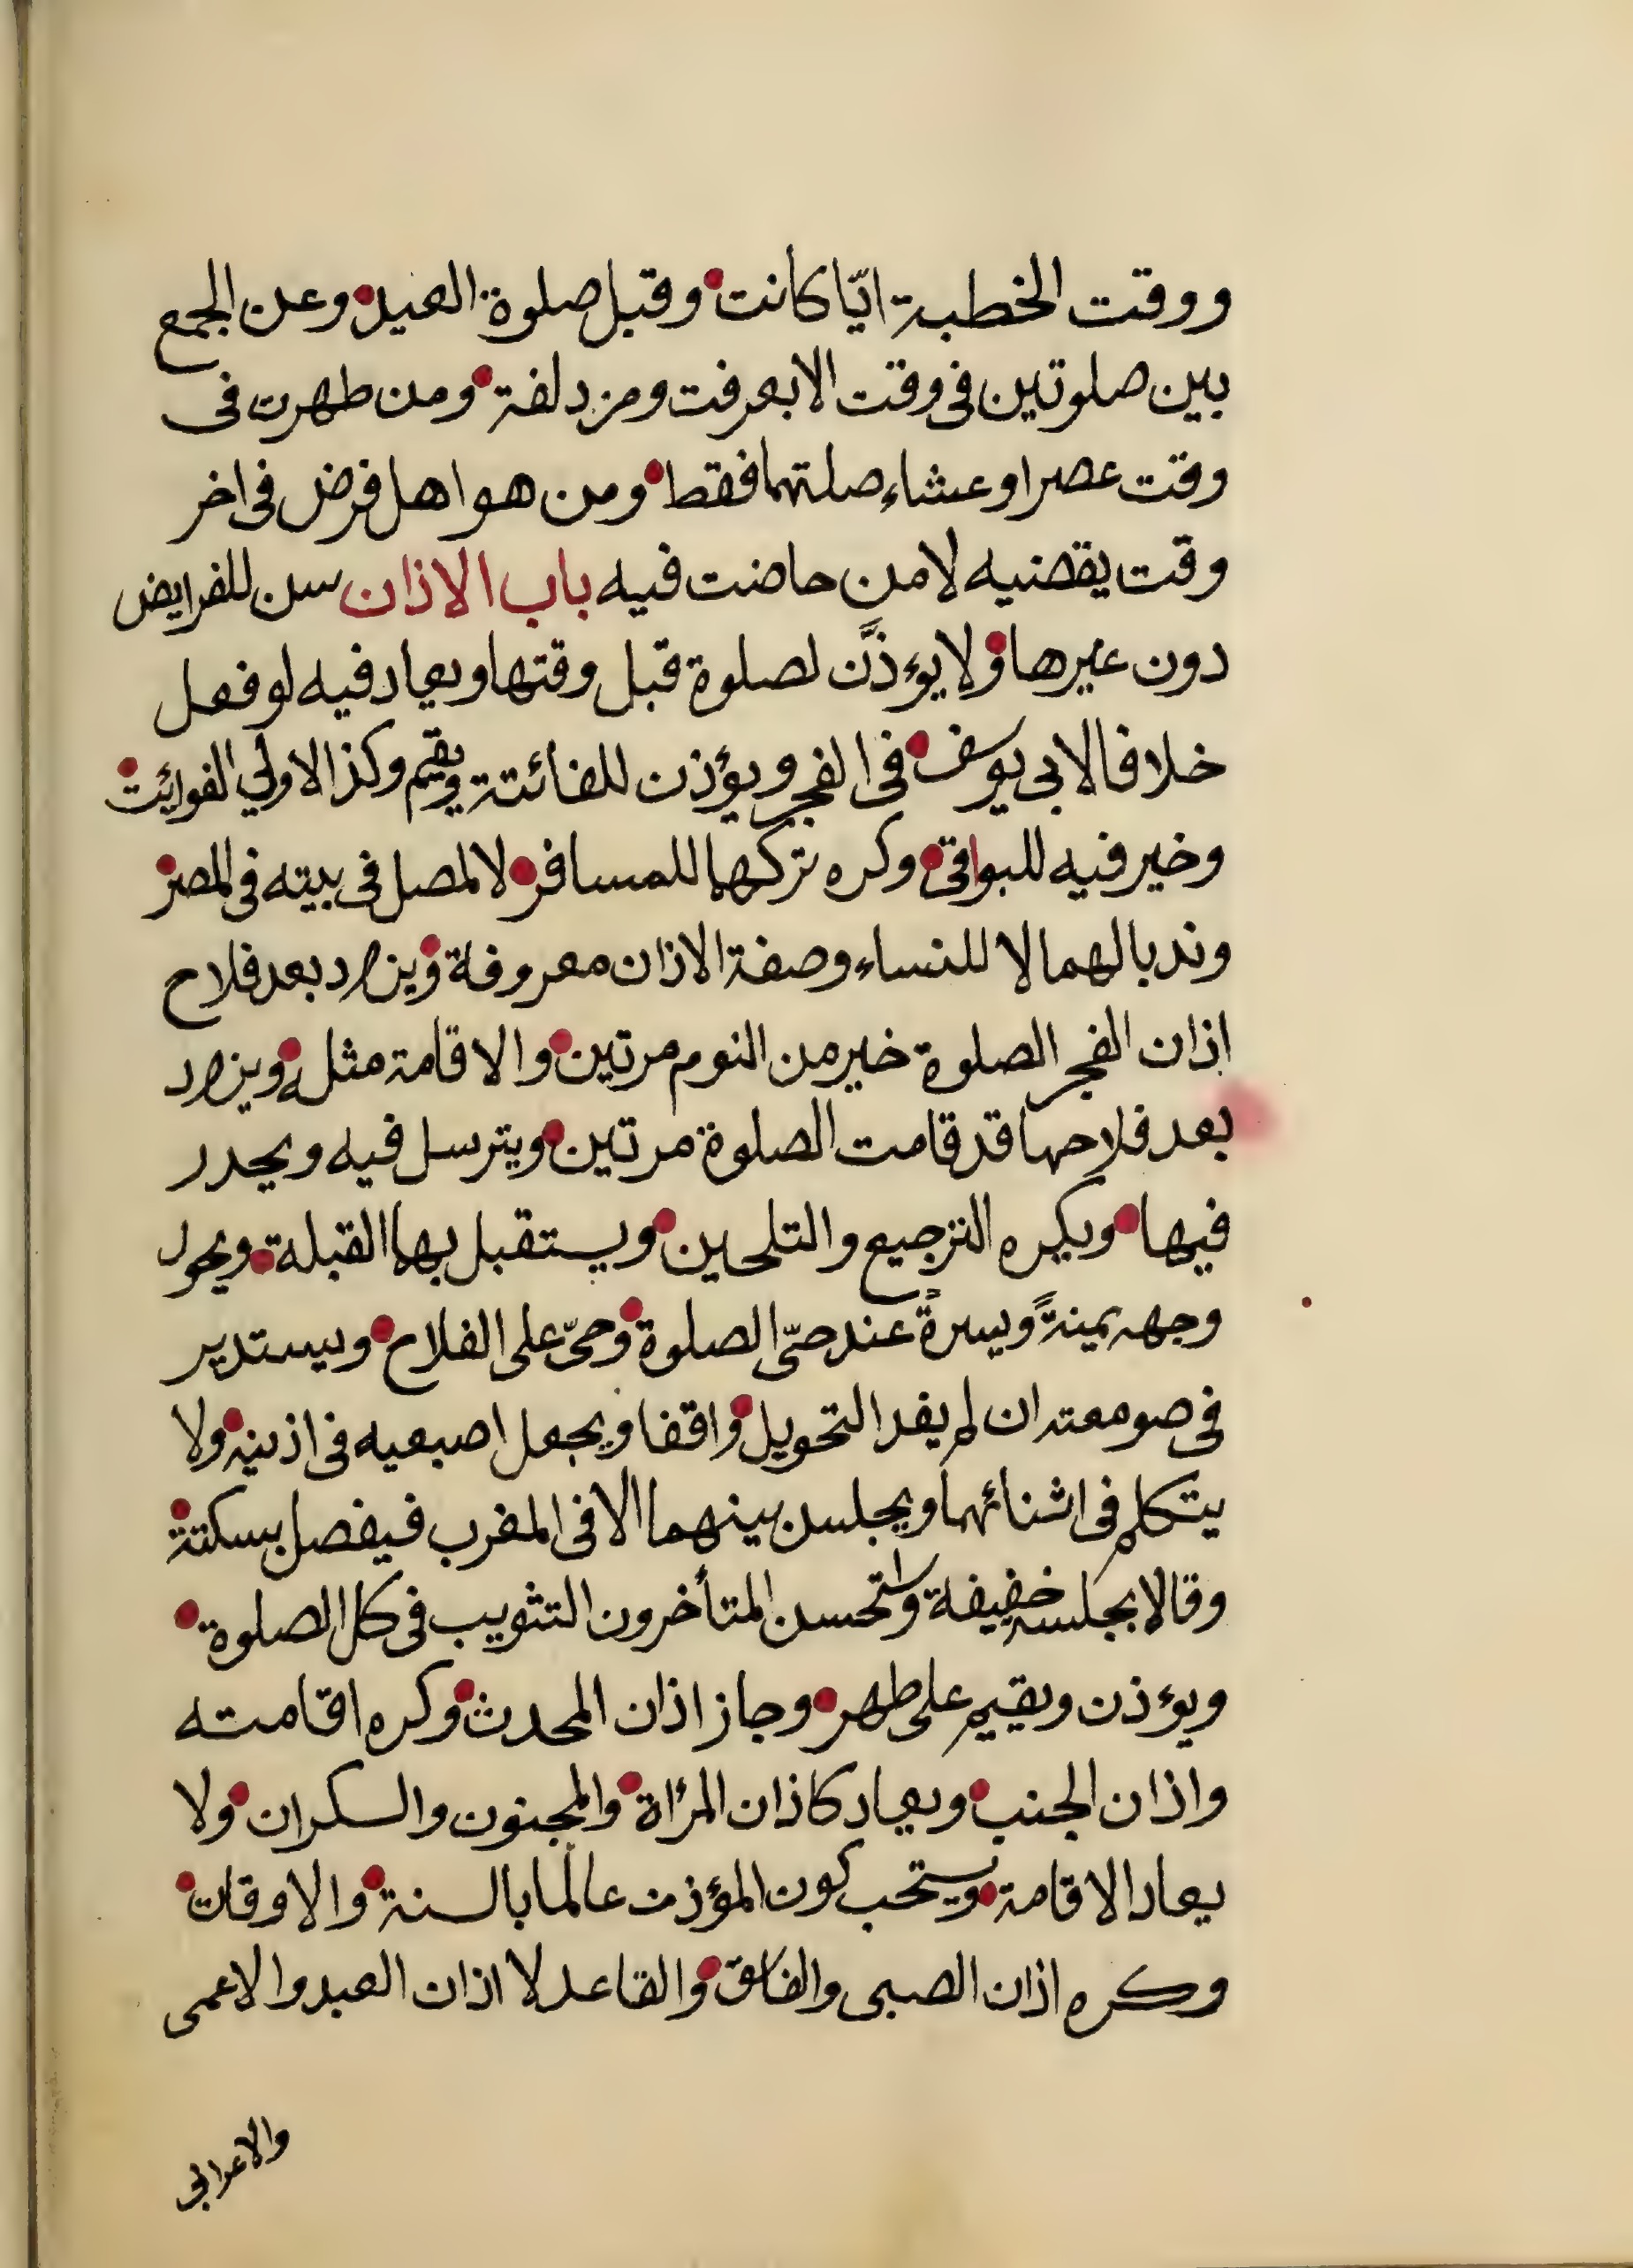 ووقت الخطبة ايّا كانت وقبل صلوة العيد وعن الجمع
بين صلوتين فى وقت الا بعرفت ومزدلفة ومن طهرت فى
وقت عصر او عشاء صلتهما فقط ومن هو اهل فرض فى اخر
وقت يقضيه لا من حاضت فيه باب الاذان سن للفرايض
دون غيرها ولا يؤذَّن لصلوة قبل وقتها ويعاد فيه لو فعل
خلافا لابى يوسف فى الفجر ويؤذن للفائتة ويقيم وكذا لاولي الفوائت
وخير فيه للبواقى وكره تركهما للمسافر لا لمصل فى بيته فى المصر
وندبا لهما لا للنساء وصفة الاذان معروفة ويزاد بعد فلاح
اذان الفجر الصلوة خير من النوم مرتين والاقامة مثله ويزاد
بعد فلاحها قد قامت الصلوة مرتين ويترسل فيه ويحدر
فيها ويكره الترجيع والتلحين ويستقبل بهما القبلة ويحول
وجهه يمنةً ويسرةً عند حىّ الصلوة وحىّ على الفلاح ويستدير
فى صومعته ان لم يفد التحويل واقفا ويجعل اصبعيه فى اذنيه ولا
يتكلم فى اثنائهما ويجلس بينهما الا فى المغرب فيفصل بسكتة
وقالا بجلسة خفيفة واستحسن المتأخرون التثويب فى كل الصلوة
ويؤذن ويقيم على طهر وجاز اذان المحدث وكره اقامته
واذان الجنب ويعاد كاذان المرأة والمجنون والسكران ولا
يعاد الاقامة ويستحب كون المؤذن عالما بالسنة والاوقات
وكره اذان الصبى والفاسق والقاعد لا اذان العبد والاعمى
والاعرابى